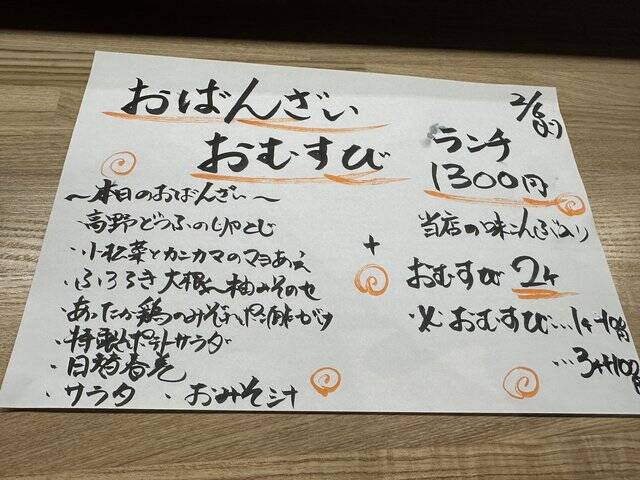 おばんざい
おむすび
2/6
ランチ
1300円
〜本日のおばんざい〜
高野どうふの
・小松菜とカニカマのマヨあえ
・ふろふき大根〜柚みそのせ
・あったか鶏のみぞれ
・特製ポテトサラダ
・自春巻
・サラダ ・おみそ汁
+
当店の味こんぶ入り
おむすび 2ケ
・おむすび…1ケ
…3ケ+100円